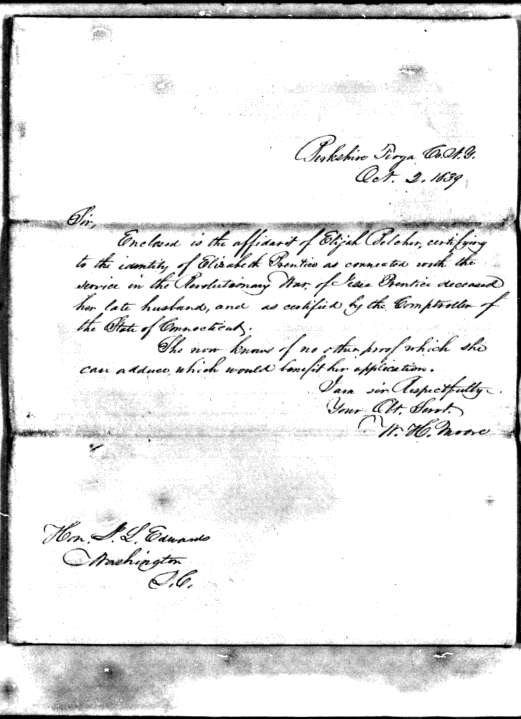 Berkshire Tioga Co. N.Y.
Oct. 2. 1839
Sir,
Enclosed is the affidavit of Elijah Belcher, certifying
to the identity of Elizabeth Prentice as connected with the
service in the Revolutionary War, of Jesse Prentice deceased
her late husband, and as certified by the Comptroller of
the State of Connecticut.
She now knows of no other proof which she
can adduce which would benefit her application.
I am sir Respectfully
Your Obt. Servt.
W. H. Moore
Hon. J. L. Edwards
Washington
D.C.